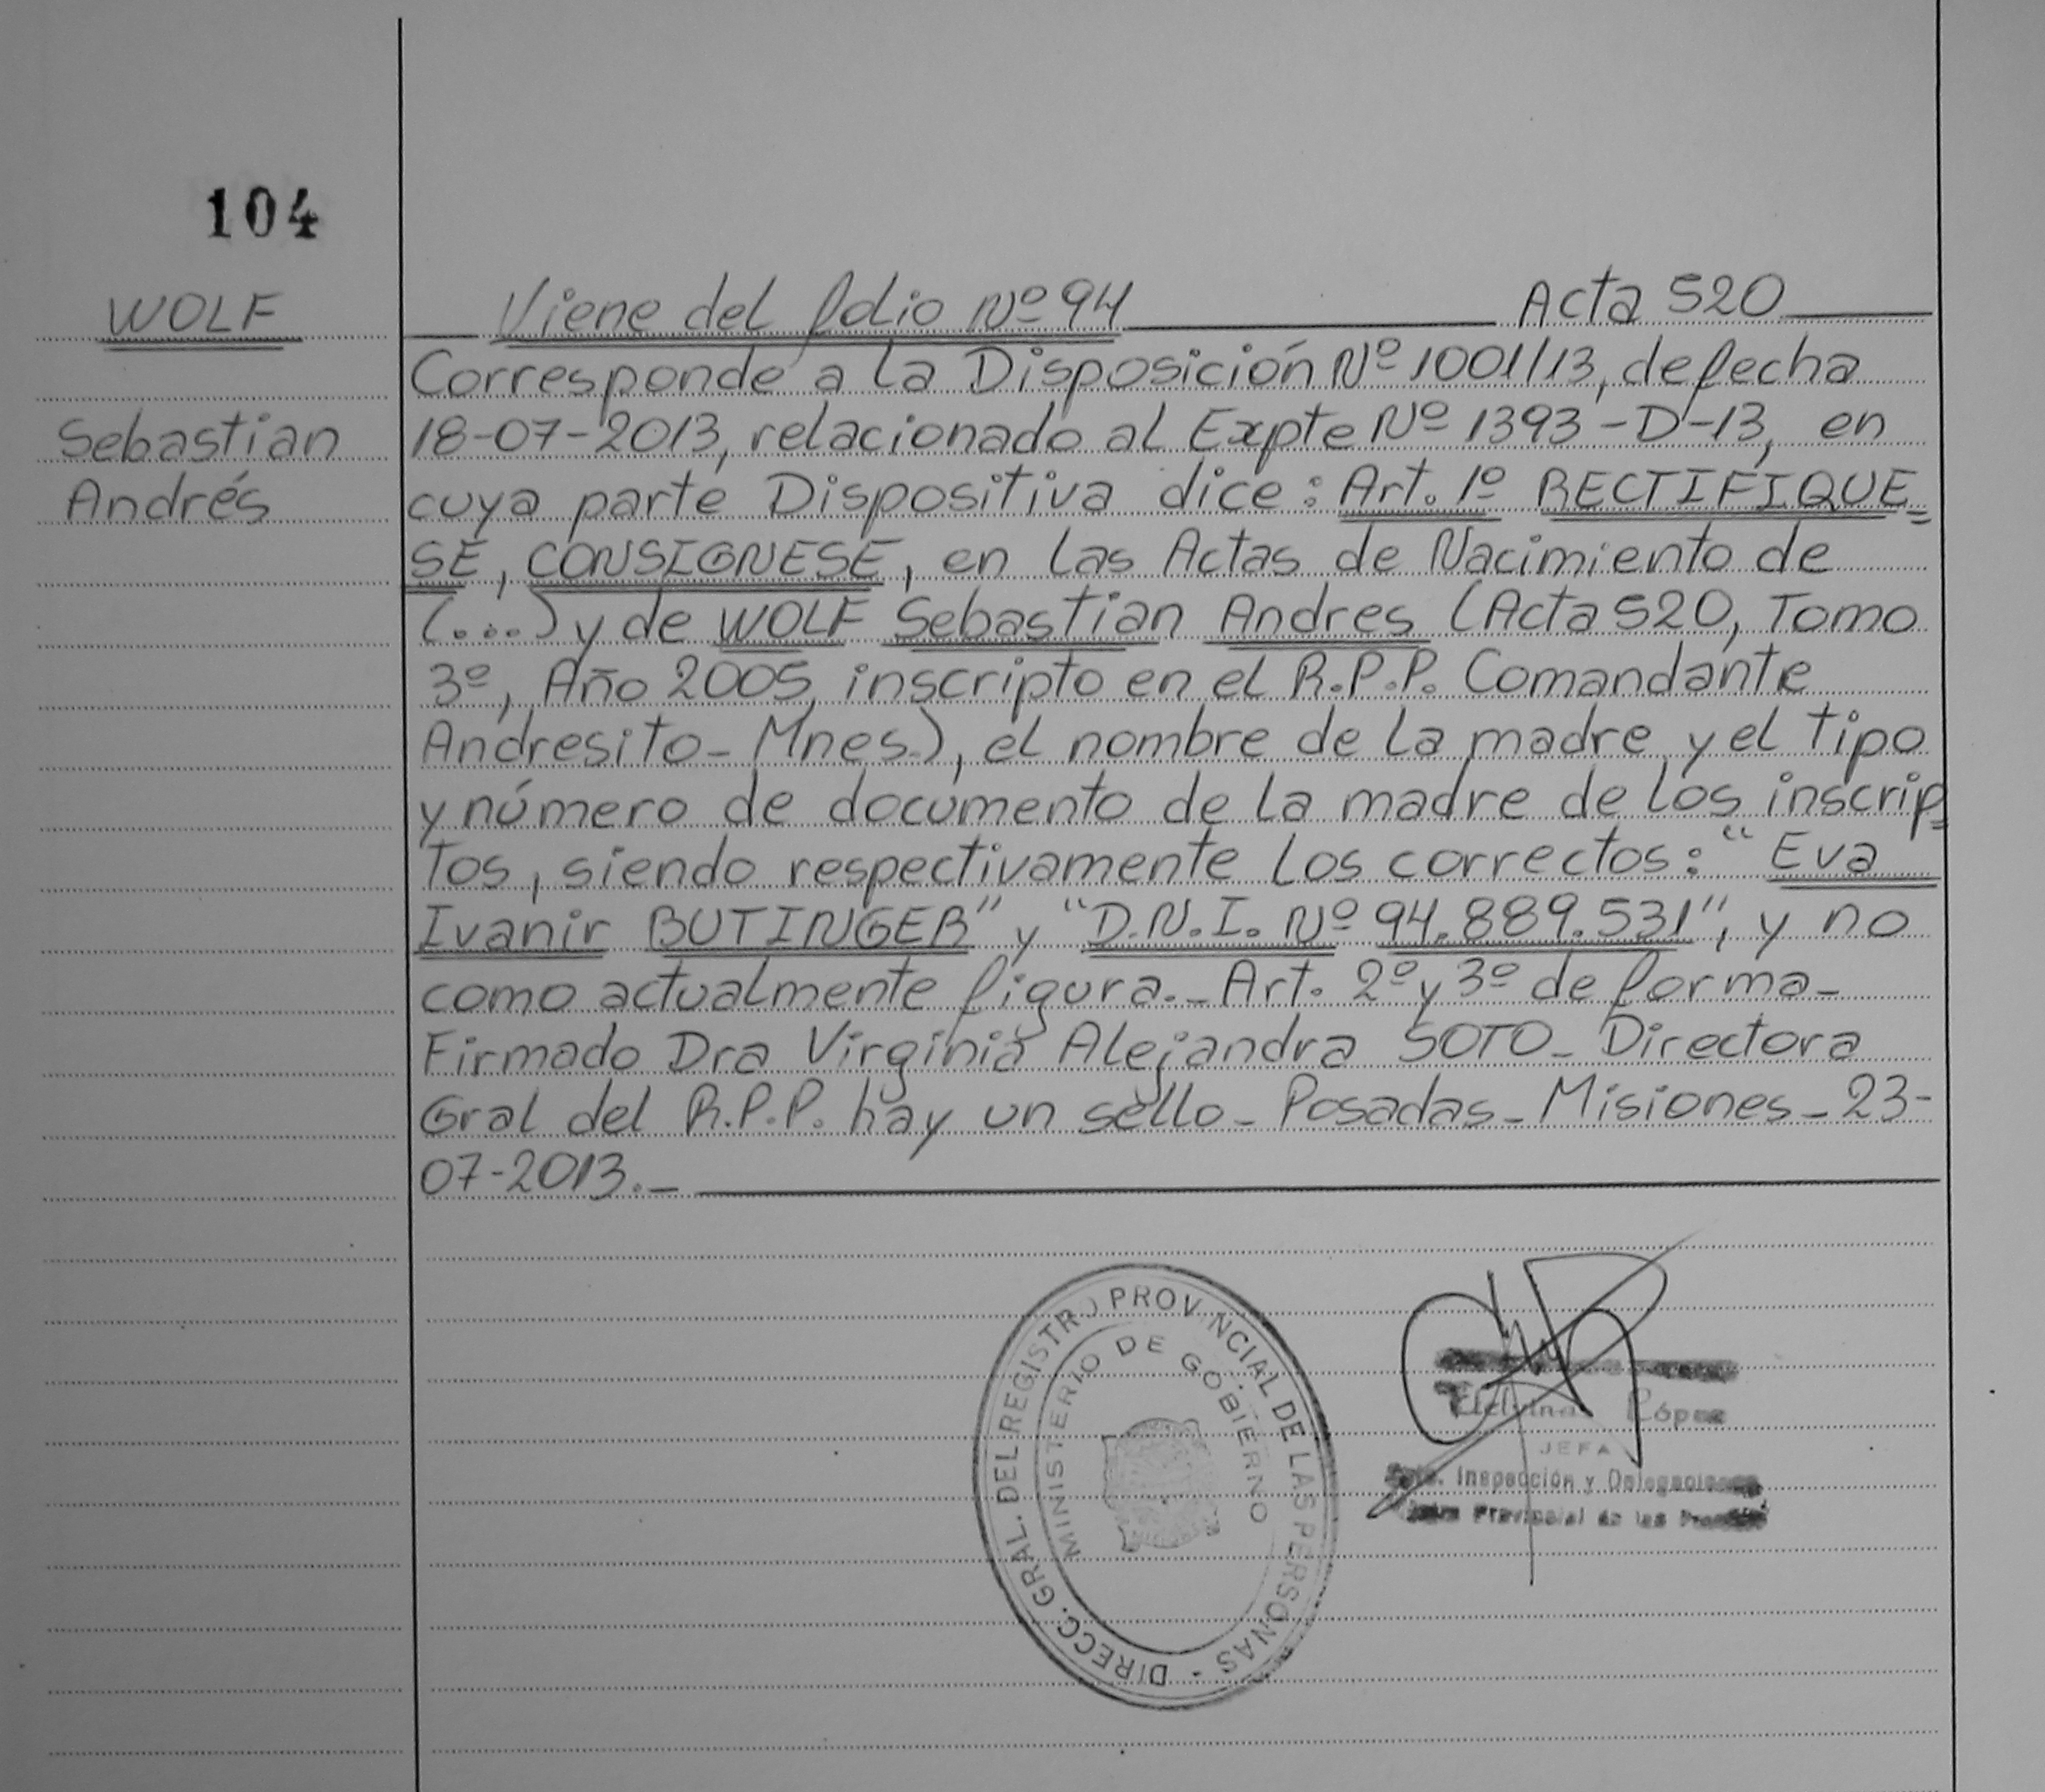 104
WOLF
Sebastian
Andrés
Viene del folio Nº 94 Acta 520
Corresponde a la Disposición Nº 1001/13, de fecha
18-07-2013, relacionado al Expte Nº 1393-D-13, en
cuya parte Dispositiva dice: Art. 1º RECTIFIQUE=
SE, CONSIGNESE, en las Actas de Nacimiento de
(...) y de WOLF Sebastian Andres (Acta 520, Tomo
3º, Año 2005, inscripto en el R.P.P. Comandante
Andresito-Mnes.), el nombre de la madre y el tipo
y número de documento de la madre de los inscrip=
tos, siendo respectivamente los correctos: "Eva
Ivanir BUTINGER" y "D.N.I. Nº 94.889.531", y no
como actualmente figura.- Art. 2º y 3º de forma-
Firmado Dra Virginia Alejandra SOTO- Directora
Gral del R.P.P. hay un sello- Posadas- Misiones- 23-
07-2013.-
DIRECC. GRAL. DEL REGISTRO PROVINCIAL DE LAS PERSONAS -
MINISTERIO DE GOBIERNO
López
JEFA
Inspección y Delegaciones
Provincial de las